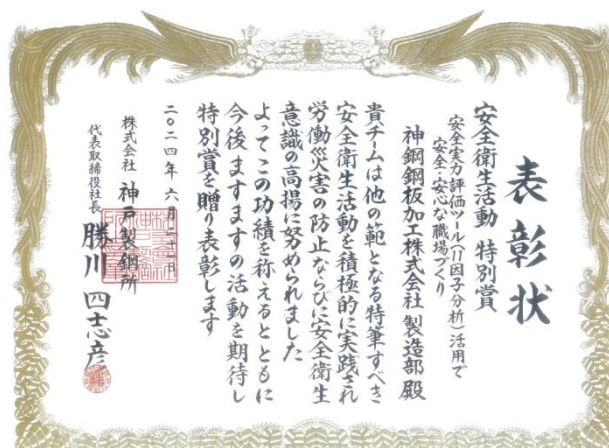 表彰状
安全衛生活動 特別賞
安全実力評価ツール(11因子分析)活用で
安全・安心な職場づくり
神鋼鋼板加工株式会社 製造部 殿
貴チームは他の範となる特筆すべき
安全衛生活動を積極的に実践され
労働災害の防止ならびに安全衛生
意識の高揚に努められました
よってこの功績を称えるとともに
今後ますますの活動を期待し
特別賞を贈り表彰します
二〇二四年 六月二十一日
株式会社 神戸製鋼所
代表取締役社長 勝川 四志彦